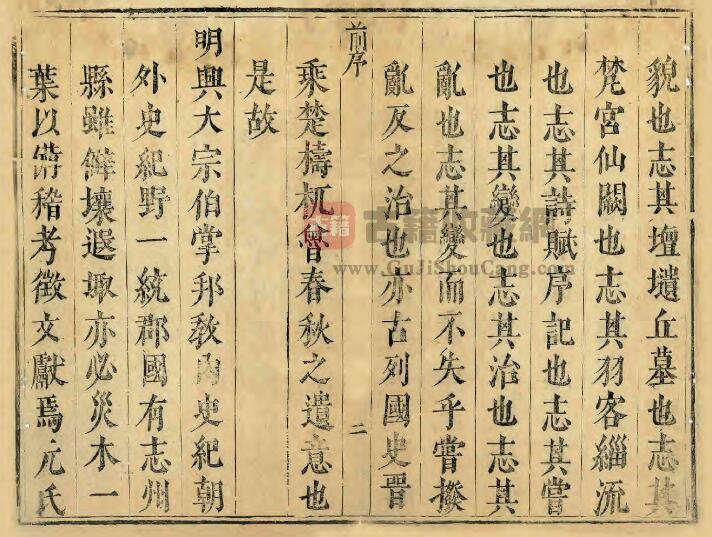 貌也志其壇壝丘墓也志其
梵宮仙闕也志其羽客緇流
也志其詩賦序記也志其嘗
也志其變也志其治也志其
亂也志其變而不失乎嘗撥
亂反之治也亦古列國史晋
前序
二
乘楚檮杌魯春秋之遺意也
是故
明興大宗伯掌邦敎內史紀朝
外史紀野一統郡國有志州
縣雖僻壤遐陬亦必災木一
葉以俻稽考徵文獻焉元氏
古籍
古籍收藏網
www.GuJiShouCang.com